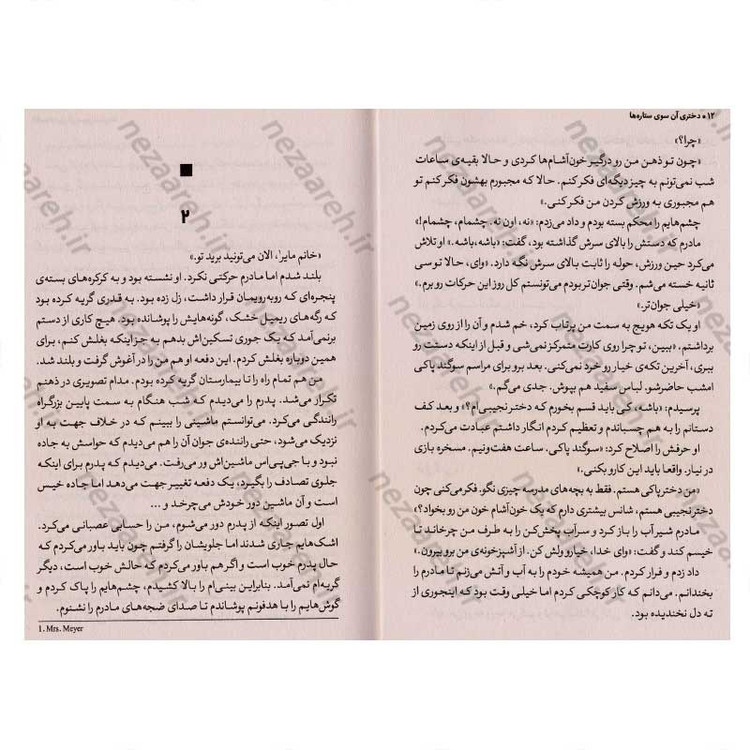 ۱۲ • دختری آن سوی ستاره‌ها
«چرا؟»
«چون تو ذهن من رو درگیر خون‌آشام‌ها کردی و حالا بقیه‌ی ساعات
شب نمی‌تونم به چیز دیگه‌ای فکر کنم. حالا که مجبورم بهشون فکر کنم تو
هم مجبوری به ورزش کردن من فکر کنی.»
چشم‌هایم را محکم بسته بودم و داد می‌زدم: «نه، اون نه. چشمام، چشمام!»
مادرم که دستش را بالای سرش گذاشته بود، گفت: «باشه، باشه.» او تلاش
می‌کرد حین ورزش، حوله را ثابت بالای سرش نگه دارد. «وای، حالا تو سی
ثانیه خسته می‌شم. وقتی جوان‌تر بودم می‌تونستم کل روز این حرکات رو برم.»
«خیلی جوان‌تر.»
او یک تکه هویج به سمت من پرتاب کرد، خم شدم و آن را از روی زمین
برداشتم. «ببین، تو چرا روی کارت متمرکز نمی‌شی و قبل از اینکه دستت رو
ببری، آخرین تکه‌ی خیار رو خرد نمی‌کنی. بعد برو برای مراسم سوگند پاکی
امشب حاضر شو. لباس سفید هم بپوش. جدی می‌گم.»
پرسیدم: «باشه، کی باید قسم بخورم که دختر نجیبی‌ام؟» و بعد کف
دستانم را به هم چسباندم و تعظیم کردم انگار داشتم عبادت می‌کردم.
او حرفش را اصلاح کرد: «سوگند پاکی. ساعت هفت‌ونیم. مسخره بازی
در نیار. واقعا باید این کارو بکنی.»
«من دختر پاکی هستم. فقط به بچه‌های مدرسه چیزی نگو. فکر می‌کنی چون
دختر نجیبی هستم، شانس بیشتری دارم که یک خون‌آشام خون من رو بخواد؟»
مادرم شیر آب را باز کرد و سرآب پخش‌کن را به طرف من چرخاند تا
خیسم کند و گفت: «وای خدا، خیارو ولش کن. از آشپزخونه‌ی من برو بیرون.»
داد زدم و فرار کردم. من همیشه خودم را به آب و آتش می‌زنم تا مادرم را
بخندانم. می‌دانم که کار کوچکی کردم اما خیلی وقت بود که اینجوری از
ته دل نخندیده بود.
۲
«خانم مایر۱، الان می‌تونید برید تو.»
بلند شدم اما مادرم حرکتی نکرد. او نشسته بود و به کرکره‌های بسته‌ی
پنجره‌ای که روبه‌رویمان قرار داشت، زل زده بود. به قدری گریه کرده بود
که رگه‌های ریمیل خشک، گونه‌هایش را پوشانده بود. هیچ کاری از دستم
برنمی‌آمد که یک جوری تسکین‌اش بدهم به جز اینکه بغلش کنم، برای
همین دوباره بغلش کردم. این دفعه او هم من را در آغوش گرفت و بلند شد.
من هم تمام راه را تا بیمارستان گریه کرده بودم. مدام تصویری در ذهنم
تکرار می‌شد. پدرم را می‌دیدم که شب هنگام به سمت پایین بزرگراه
رانندگی می‌کرد. می‌توانستم ماشینی را ببینم که در خلاف جهت به او
نزدیک می‌شود، حتی راننده‌ی جوان آن را هم می‌دیدم که حواسش به جاده
نبود و با جی‌پی‌اس ماشین‌اش ور می‌رفت. می‌دیدم که پدرم برای اینکه
جلوی تصادف را بگیرد، یک دفعه تغییر جهت می‌دهد اما جاده خیس
است و آن ماشین دور خودش می‌چرخد و ...
اول تصور اینکه از پدرم دور می‌شوم، من را حسابی عصبانی می‌کرد.
اشک‌هایم جاری شدند اما جلویشان را گرفتم چون باید باور می‌کردم که
حال پدرم خوب است و اگر هم باور می‌کردم که حالش خوب است، دیگر
گریه‌ام نمی‌آمد. بنابراین بینی‌ام را بالا کشیدم، چشم‌هایم را پاک کردم و
گوش‌هایم را با هدفونم پوشاندم تا صدای ضجه‌های مادرم را نشنوم.
1. Mrs. Meyer
nezaareh.ir